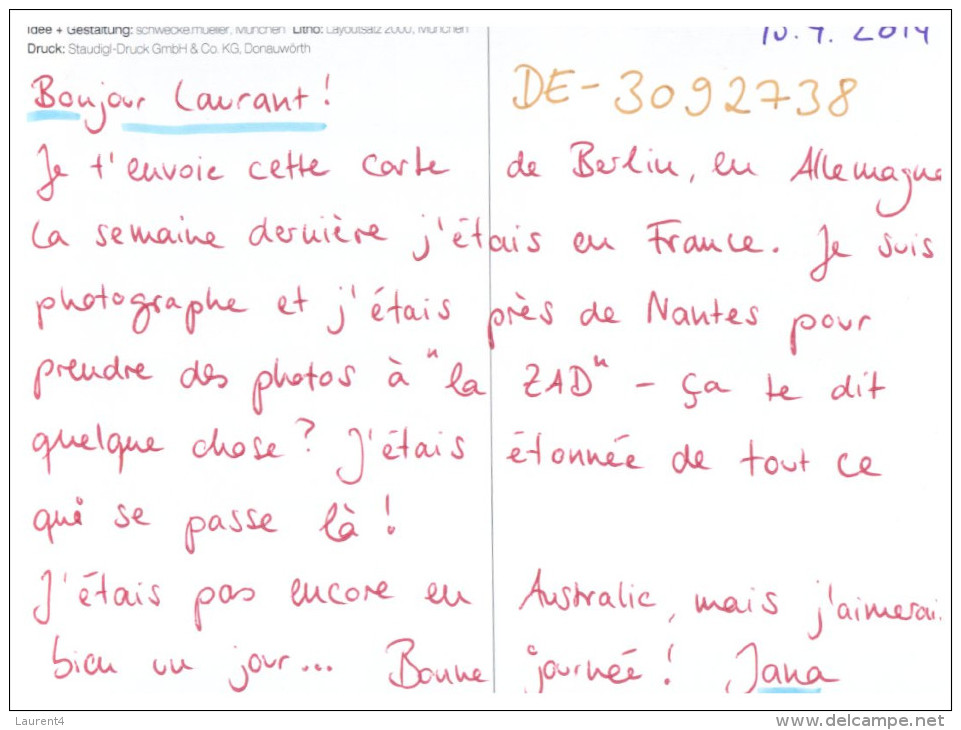 Idee + Gestaltung: schwecke.mueller, München Litho: Layoutsatz 2000, München
Druck: Staudigl-Druck GmbH & Co. KG, Donauwörth
2014
DE-3092738
Bonjour Laurant!
Je t'envoie cette carte de Berlin, en Allemagne
La semaine dernière j'étais en France. Je suis
photographe et j'étais près de Nantes pour
prendre des photos à "la ZAD" - ça te dit
quelque chose? J'étais étonnée de tout ce
qui se passe là!
J'étais pas encore en Australie, mais j'aimerai
bien un jour... Bonne journée! Jana
Laurent4
www.delcampe.net